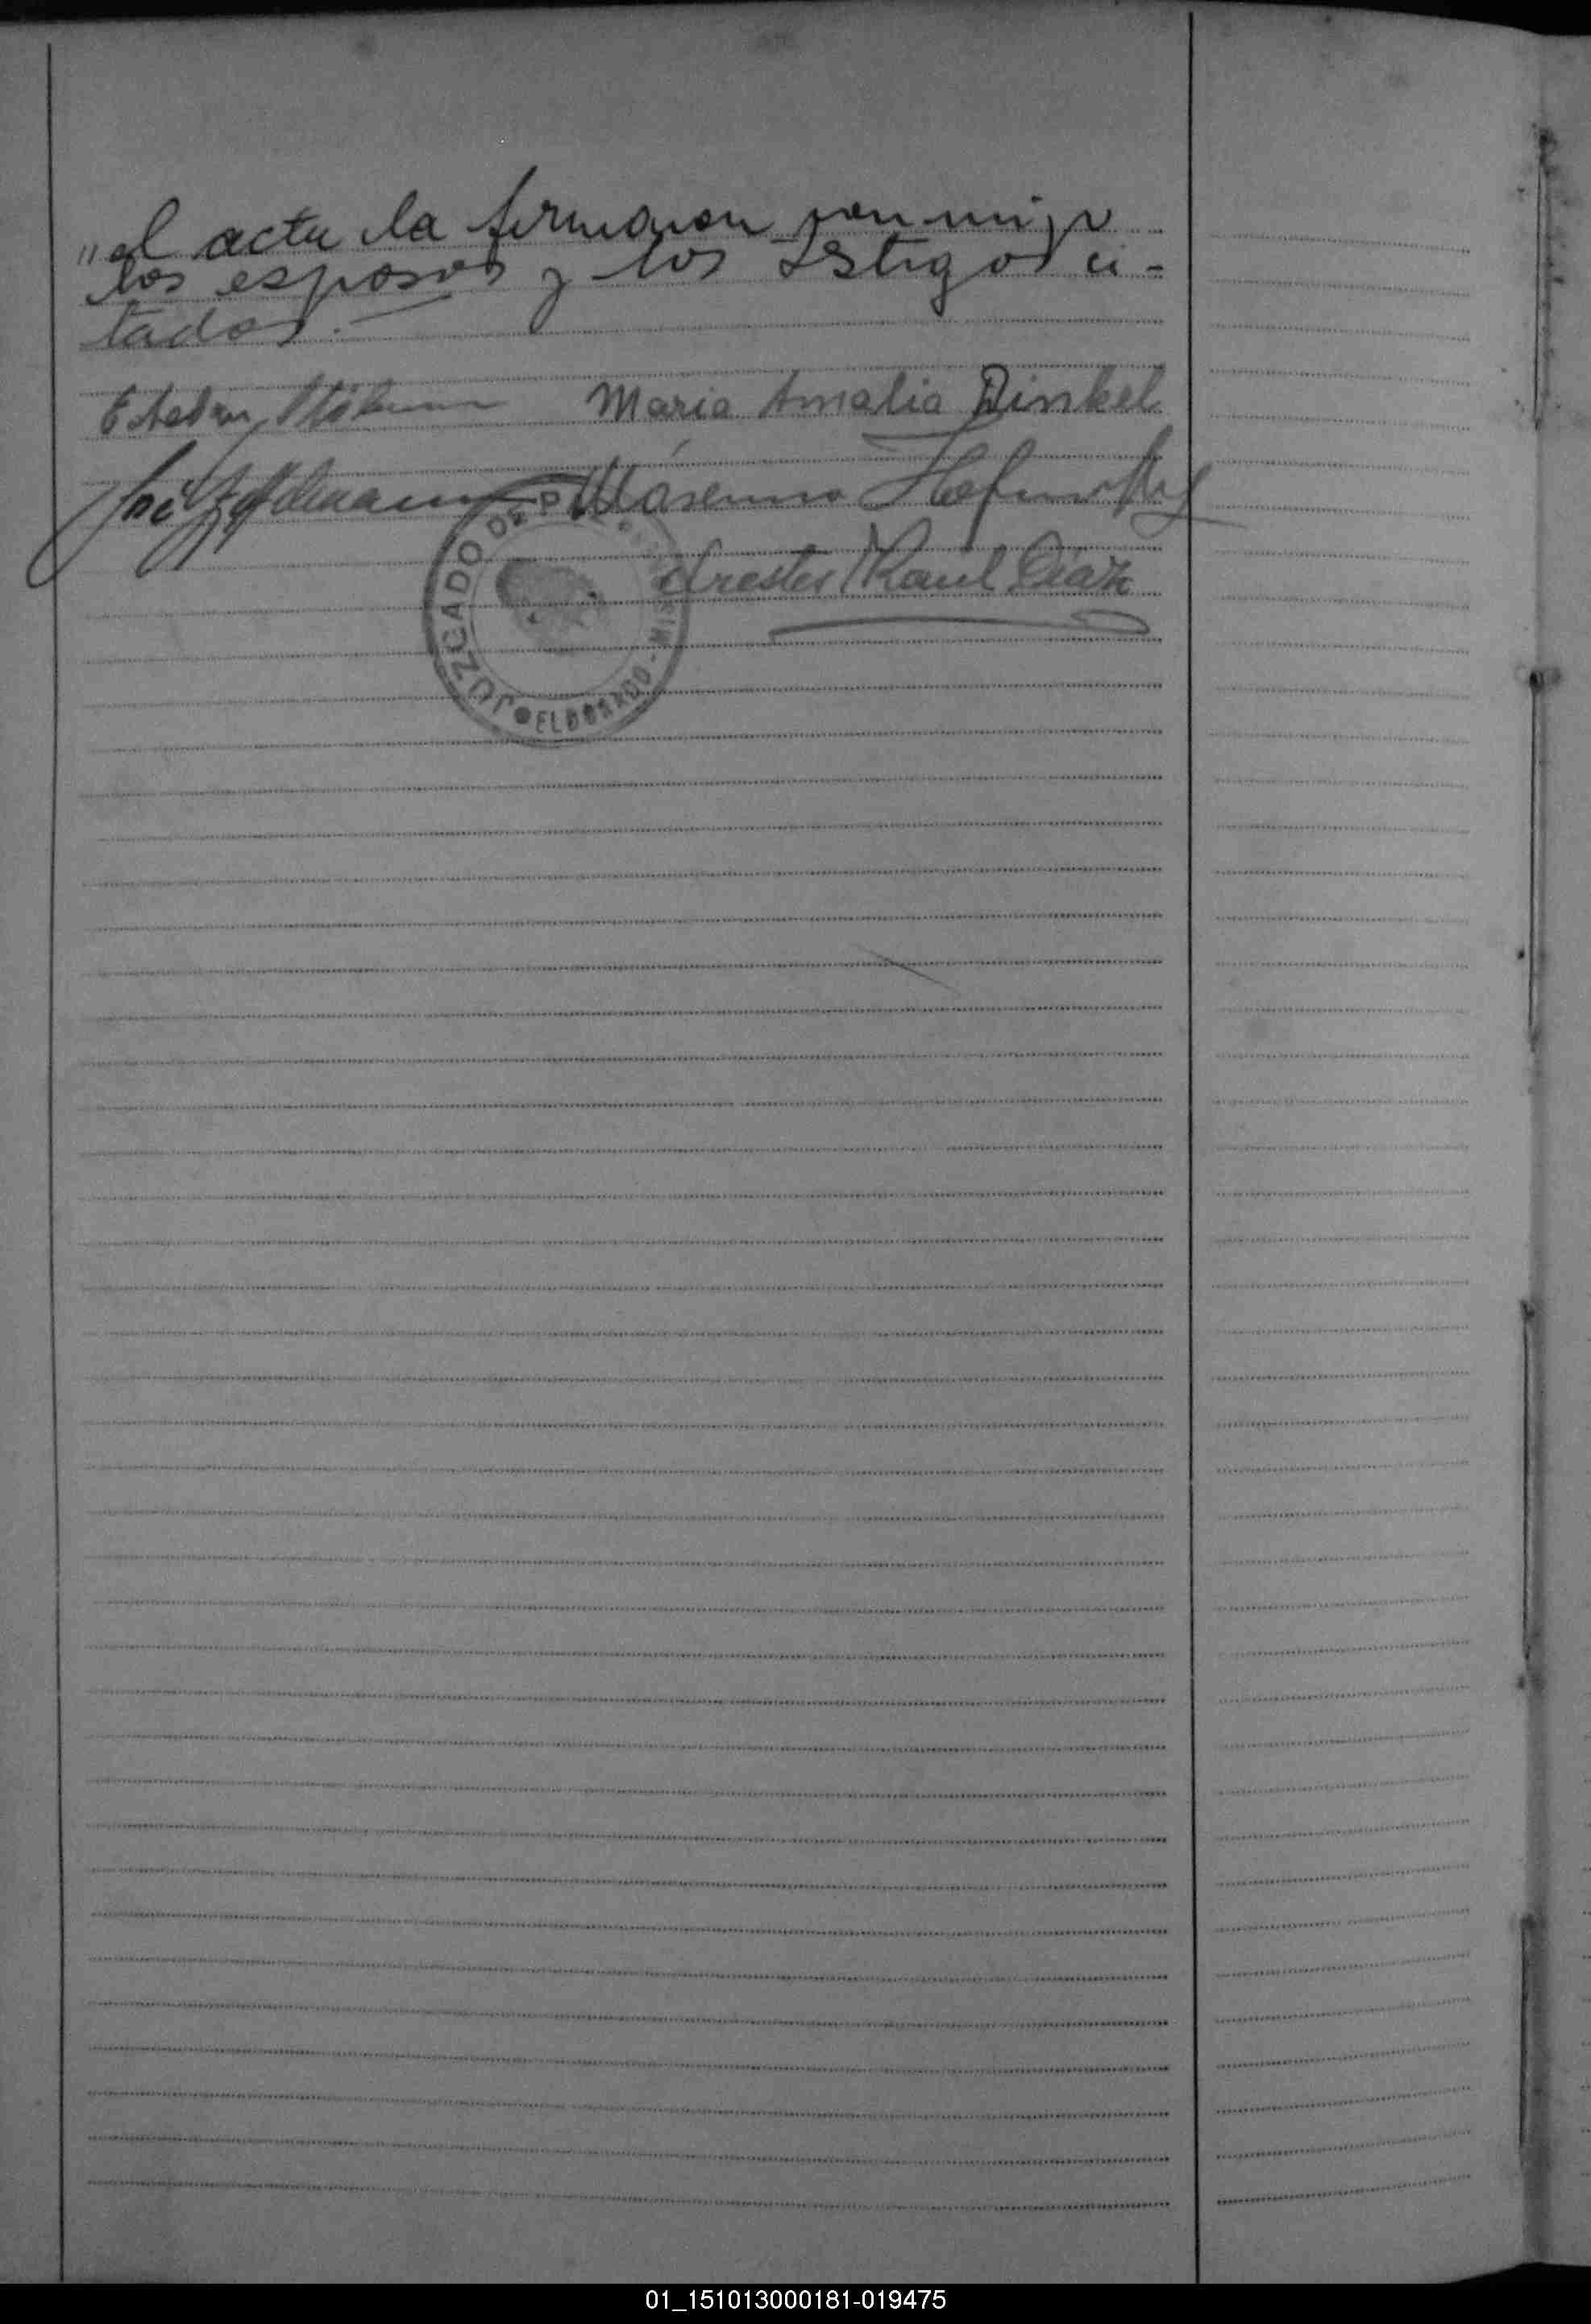 "el acta la firmaron conmigo
los esposos y los testigos ci-
tados.—
Esteban
Maria Amalia Dinkel
José
Orestes Raul Diaz
JUZGADO DE P
ELDORADO - MIS
01_151013000181-019475